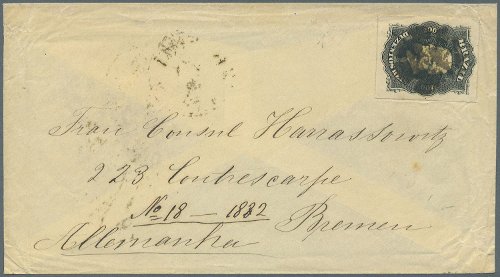 BRAZIL
Frau Consul Harrassowitz
223 Contrescarpe
No 18 — 1882
Bremen
Allemanha